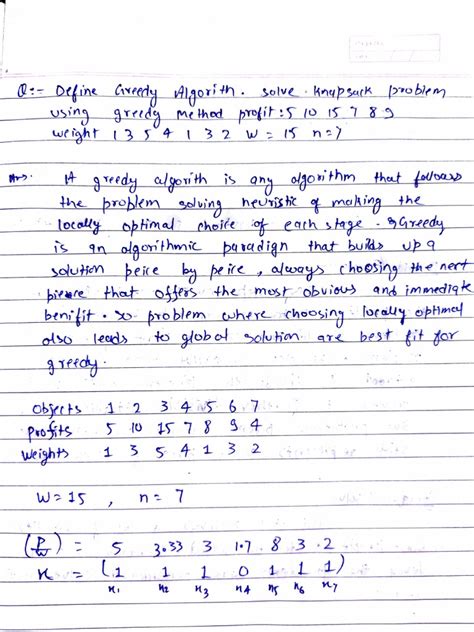 Q:- Define Greedy Algorith. solve knapsack problem
using greedy method profit: 5 10 15 7 8 9
weight 1 3 5 4 1 3 2 W = 15 n=7
Ans. A greedy algorith is any algorithm that follows
the problem solving heuristic of making the
locally optimal choice of each stage. Greedy
is an algorithmic paradign that builds up a
solution peice by peice, always choosing the next
pierce that offers the most obvious and immediate
benifit. so problem where choosing locally optimal
also leads to global solution are best fit for
greedy.
Objects 1 2 3 4 5 6 7
Profits 5 10 15 7 8 9 4
Weights 1 3 5 4 1 3 2
W=15 , n=7
(P/W) = 5 3.33 3 1.7 8 3 2
x = (1 1 1 0 1 1 1)
x1 x2 x3 x4 x5 x6 x7